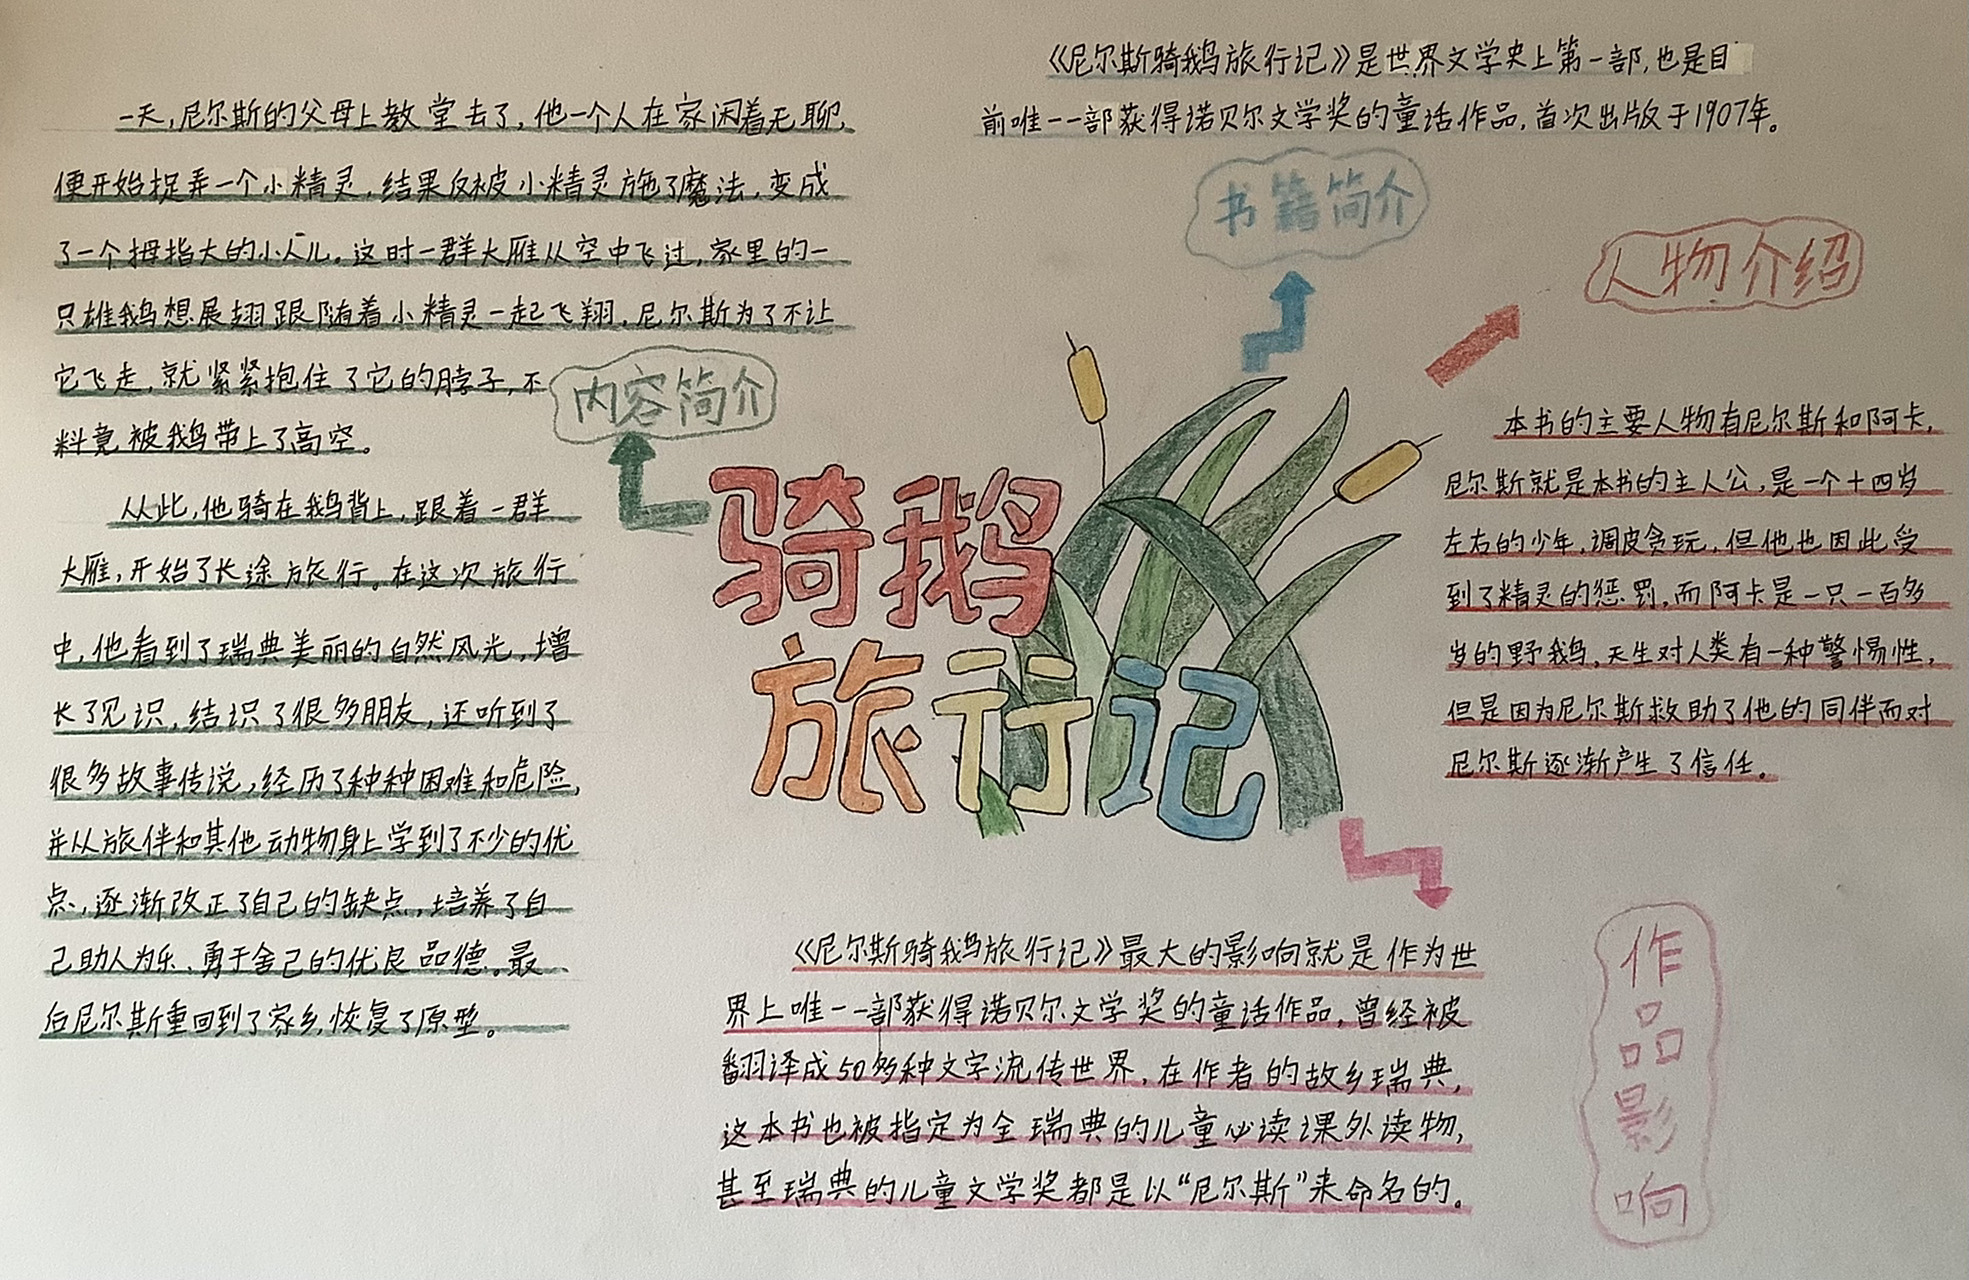 一天,尼尔斯的父母上教堂去了,他一个人在家闲着无聊,
便开始捉弄一个小精灵,结果反被小精灵施了魔法,变成
了一个拇指大的小人儿。这时一群大雁从空中飞过,家里的一
只雄鹅想展翅跟随着小精灵一起飞翔,尼尔斯为了不让
它飞走,就紧紧抱住了它的脖子,不
料竟被鹅带上了高空。
从此,他骑在鹅背上,跟着一群
大雁,开始了长途旅行。在这次旅行
中,他看到了瑞典美丽的自然风光,增
长了见识,结识了很多朋友,还听到了
很多故事传说,经历了种种困难和危险,
并从旅伴和其他动物身上学到了不少的优
点,逐渐改正了自己的缺点,培养了自
己助人为乐、勇于舍己的优良品德。最
后尼尔斯重回到了家乡,恢复了原型。
内容简介
《尼尔斯骑鹅旅行记》是世界文学史上第一部,也是目
前唯一一部获得诺贝尔文学奖的童话作品,首次出版于1907年。
书籍简介
人物介绍
本书的主要人物有尼尔斯和阿卡,
尼尔斯就是本书的主人公,是一个十四岁
左右的少年,调皮贪玩,但他也因此受
到了精灵的惩罚,而阿卡是一只一百多
岁的野鹅,天生对人类有一种警惕性,
但是因为尼尔斯救助了他的同伴而对
尼尔斯逐渐产生了信任。
骑鹅
旅行记
《尼尔斯骑鹅旅行记》最大的影响就是作为世
界上唯一一部获得诺贝尔文学奖的童话作品,曾经被
翻译成50多种文字流传世界,在作者的故乡瑞典,
这本书也被指定为全瑞典的儿童必读课外读物,
甚至瑞典的儿童文学奖都是以“尼尔斯”来命名的。
作品影响